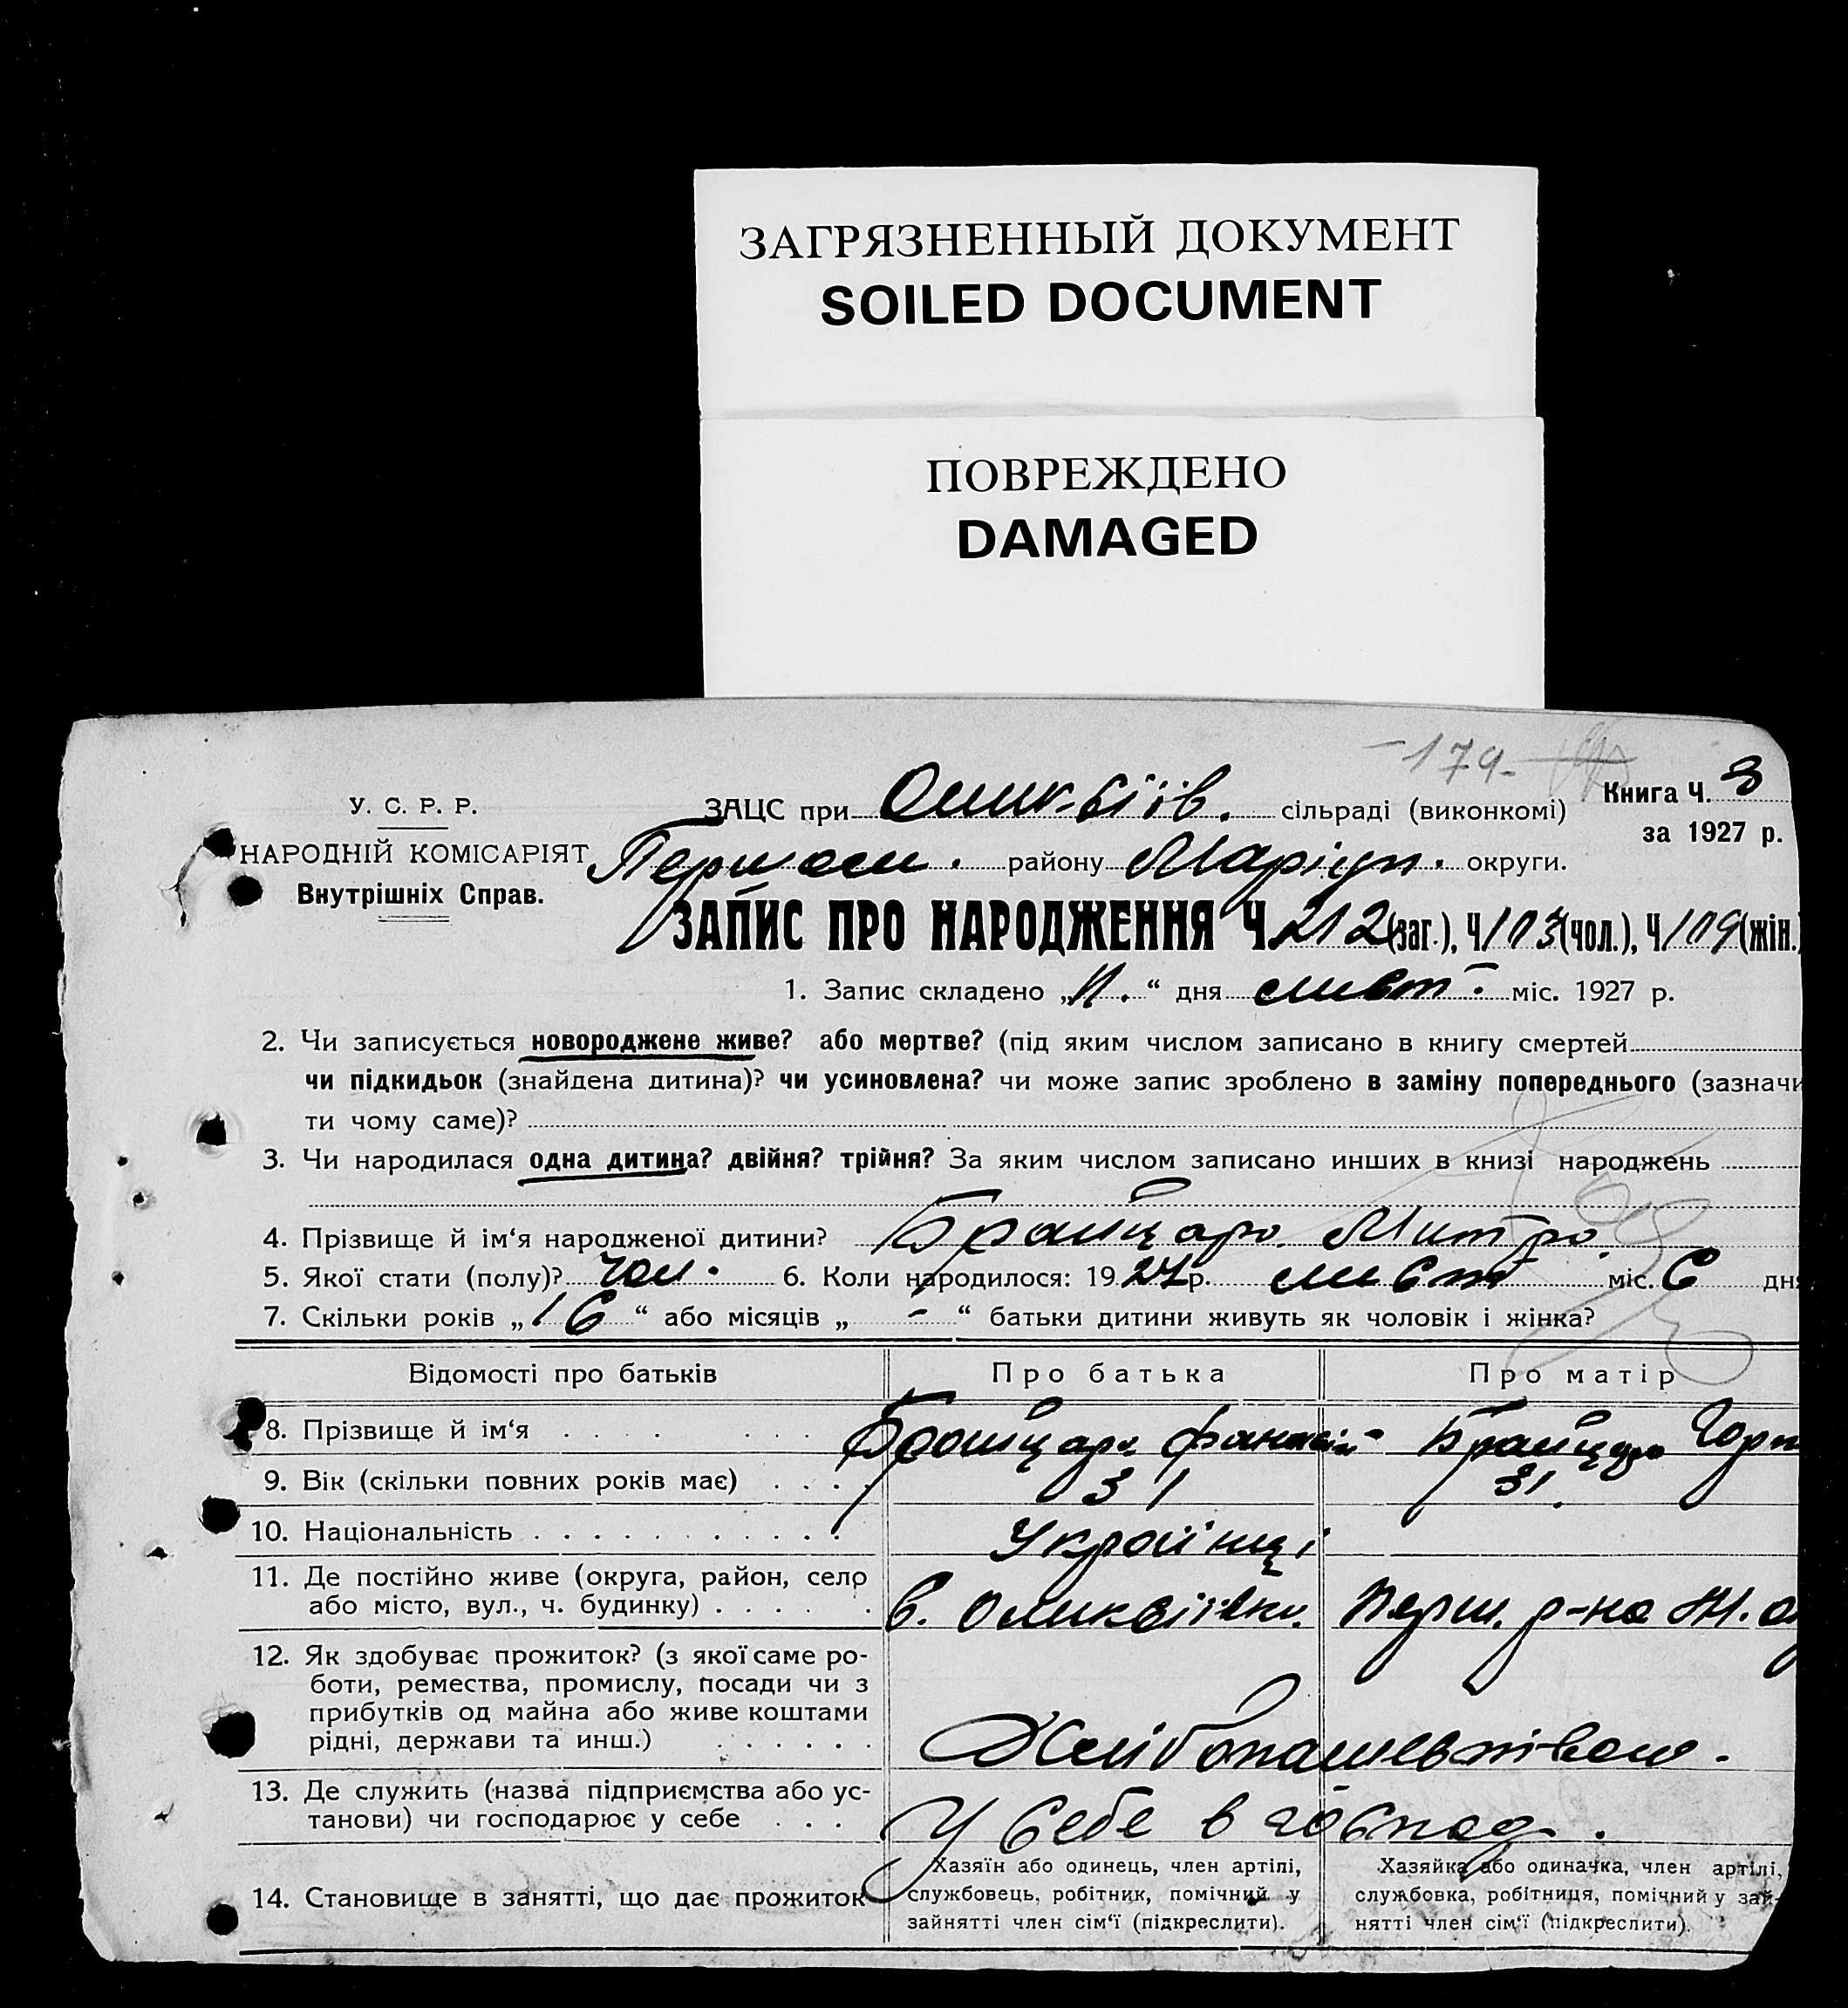 ЗАГРЯЗНЕННЫЙ ДОКУМЕНТ
SOILED DOCUMENT
ПОВРЕЖДЕНО
DAMAGED
-179-
У. С. Р. Р.
НАРОДНІЙ КОМІСАРІЯТ
Внутрішніх Справ.
ЗАЦС при сільраді (виконкомі)
Книга Ч. 8
за 1927 р.
району Маріуп. округи.
ЗАПИС ПРО НАРОДЖЕННЯ Ч. 212 (заг.), Ч 103 (чол.), Ч 109 (жін.)
1. Запис складено „11.“ дня лист. міс. 1927 р.
2. Чи записується новороджене живе? або мертве? (під яким числом записано в книгу смертей
чи підкидьок (знайдена дитина)? чи усиновлена? чи може запис зроблено в заміну попереднього (зазначи
ти чому саме)?
3. Чи народилася одна дитина? двійня? трійня? За яким числом записано инших в книзі народжень
4. Прізвище й ім‘я народженої дитини? Митро
5. Якої стати (полу)? чол. 6. Коли народилося: 1927 р. лист міс. 6 дня
7. Скільки років „ 16 “ або місяців „ - “ батьки дитини живуть як чоловік і жінка?
Відомості про батьків
Про батька
Про матір
8. Прізвище й ім‘я
9. Вік (скільки повних років має) 31 31.
10. Національність Українці
11. Де постійно живе (округа, район, село
або місто, вул., ч. будинку) с. Перш. р-на М. о
12. Як здобуває прожиток? (з якої саме ро-
боти, ремества, промислу, посади чи з
прибутків од майна або живе коштами
рідні, держави та инш.) Хлібопашевтівом.
13. Де служить (назва підприємства або ус-
танови) чи господарює у себе У себе в господ.
14. Становище в занятті, що дає прожиток
Хазяїн або одинець, член артілі,
службовець, робітник, помічний у
зайнятті член сім‘ї (підкреслити).
Хазяйка або одиначка, член артілі,
службовка, робітниця, помічний у зай-
нятті член сім‘ї (підкреслити).